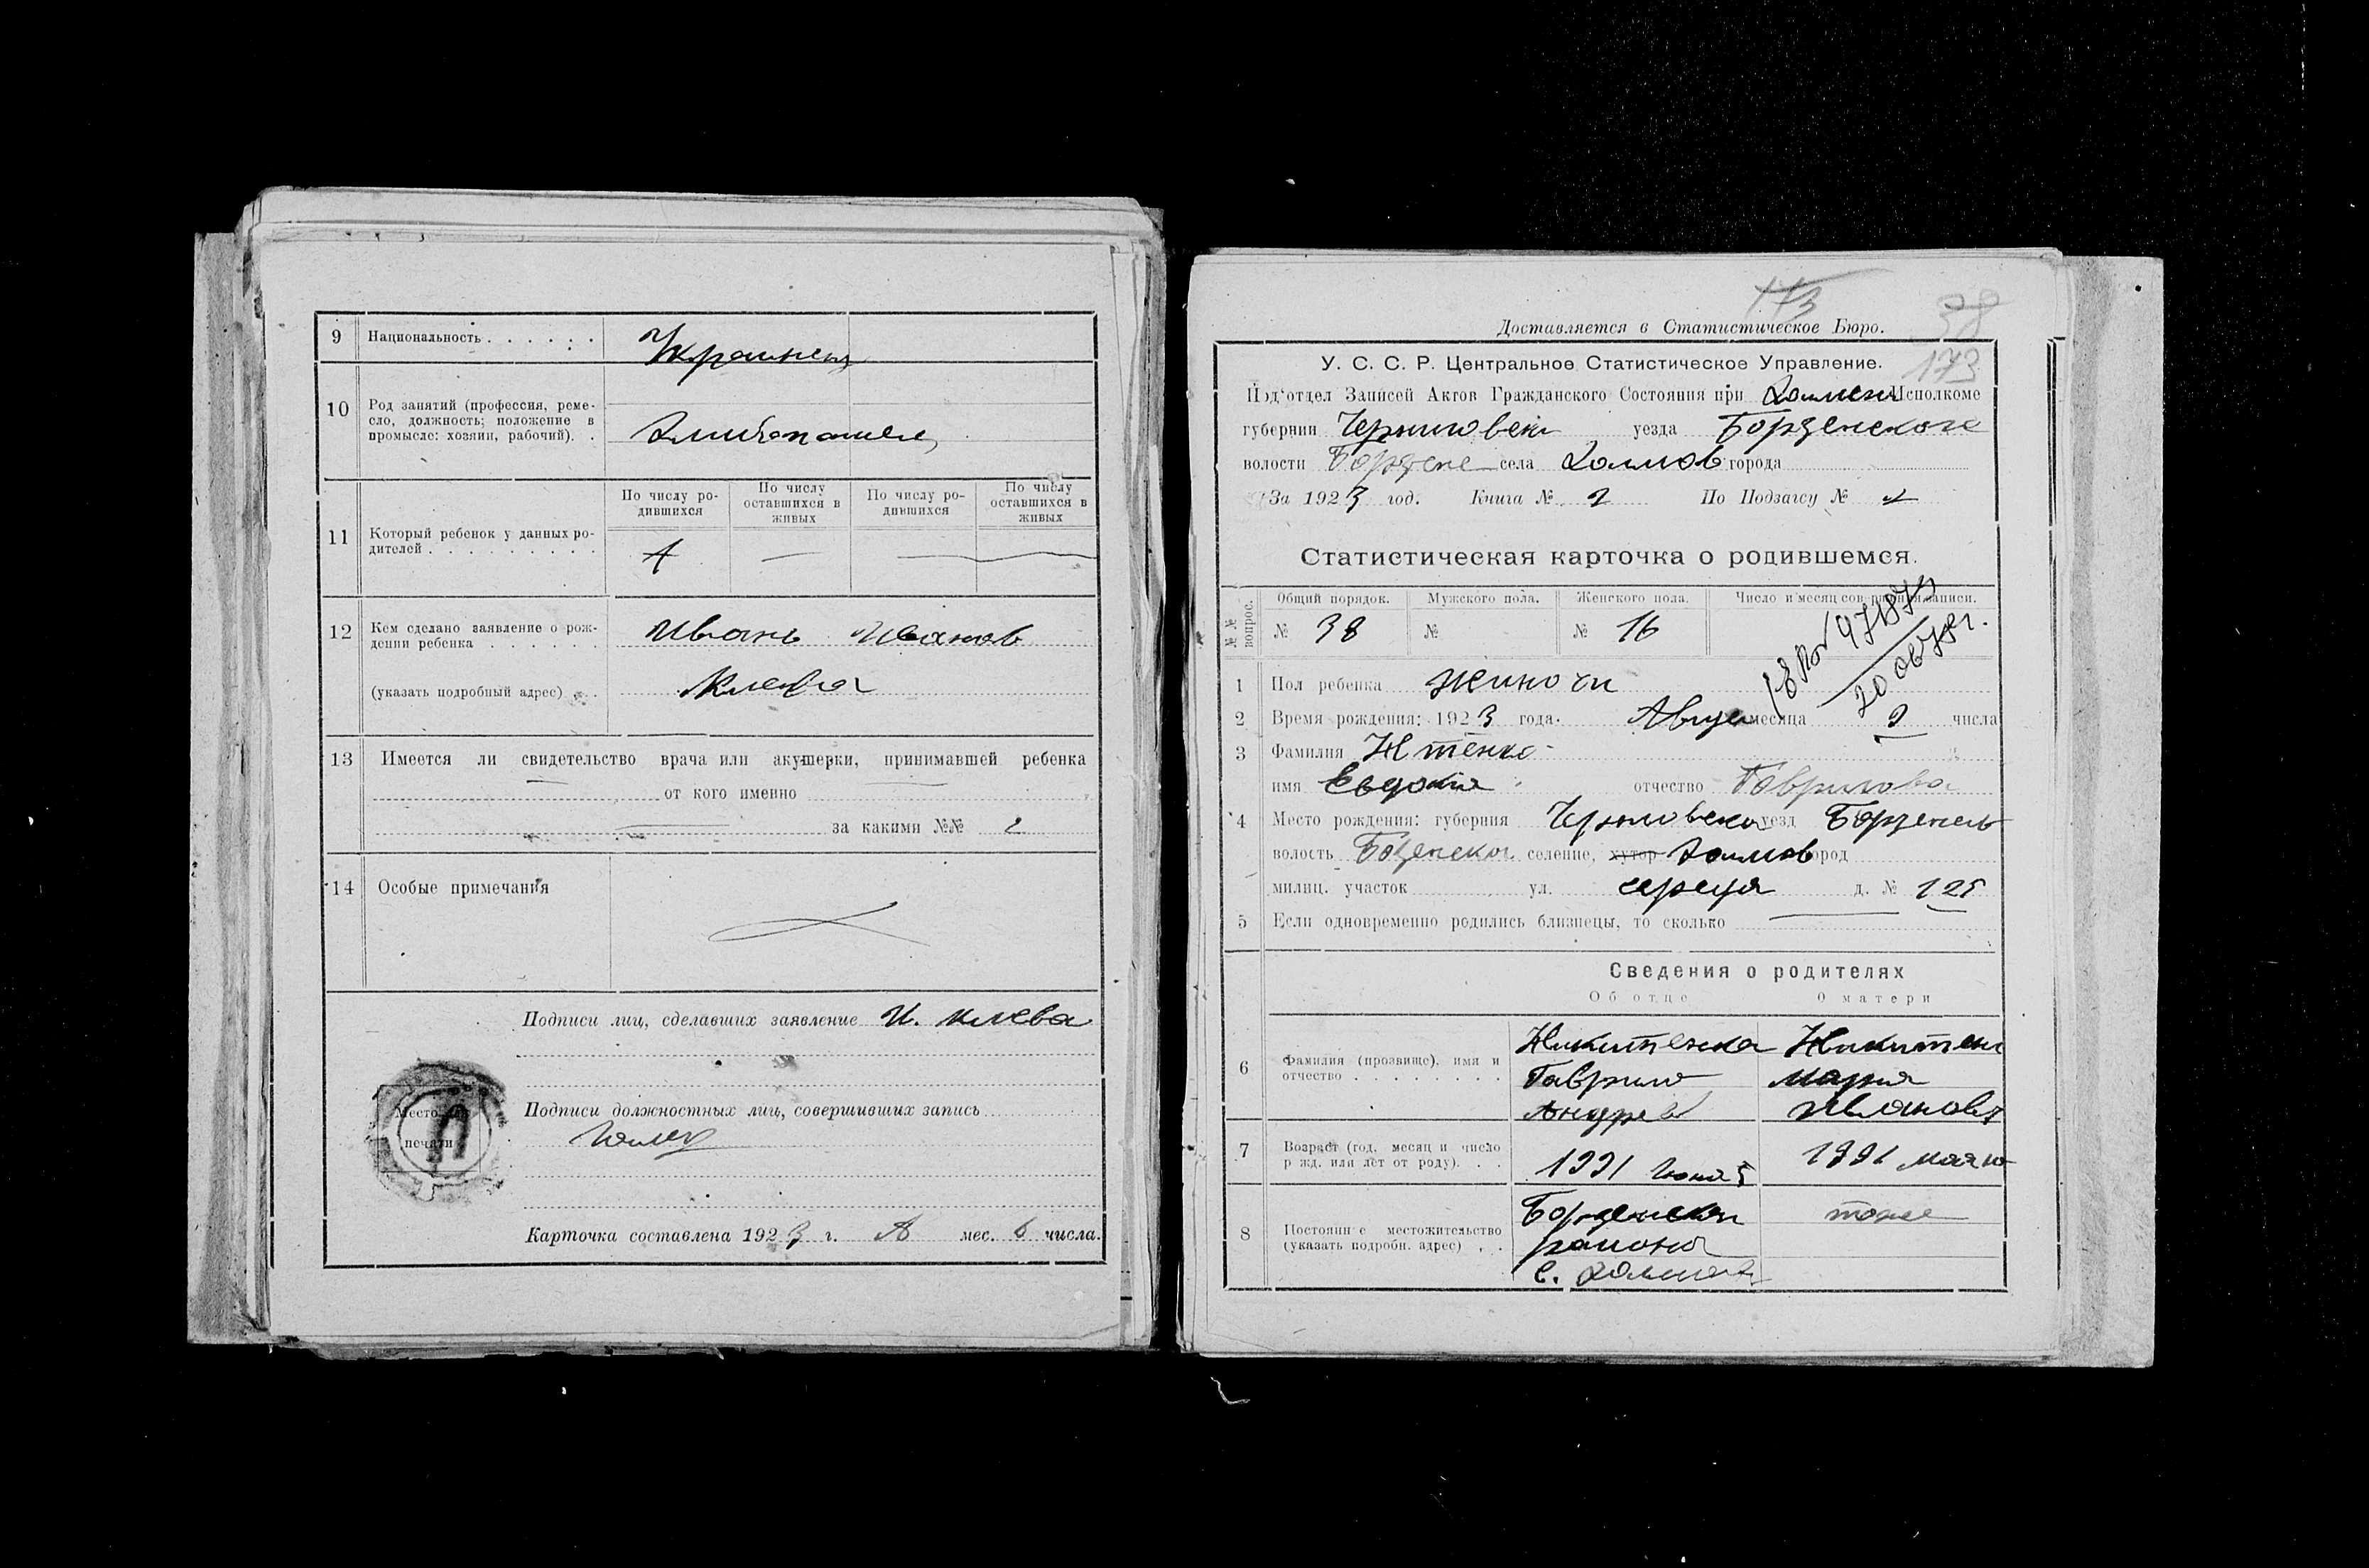 9 Национальность . . . . . . Украинец
10 Род занятий (профессия, реме-
сло, должность; положение в
промысле: хозяин, рабочий). .
По числу ро-
дившихся
По числу
оставшихся в
живых
По числу ро-
дившихся
По числу
оставшихся в
живых
11 Который ребенок у данных ро-
дителей . . . . . . . . . .
12 Кем сделано заявление о рож-
дении ребенка . . . . . . Иванъ Иванов
(указать подробный адрес) . . Клева
13 Имеется ли свидетельство врача или акушерки, принимавшей ребенка
от кого именно
за какими №№
14 Особые примечания
Подписи лиц, сделавших заявление И. Клева
Подписи должностных лиц, совершивших запись
Место для
печати
Карточка составлена 1923 г. А мес. 6 числа.
173
Доставляется в Статистическое Бюро. 38
173
У. С. С. Р. Центральное Статистическое Управление.
Под'отдел Записей Актов Гражданского Состояния при Исполкоме
губернии Черниговской уезда Борзенского
волости Борзене села города
За 1923 год. Книга № 2 По Подзагсу №
Статистическая карточка о родившемся.
№ № вопрос.
Общий порядок. Мужского пола. Женского пола. Число и месяц совершения записи.
№ 38 № № 16
1 Пол ребенка жиночи
2 Время рождения: 1923 года. Авгус месяца 2 числа
3 Фамилия Нтенко
имя Евдокия отчество Гаврилова
4 Место рождения: губерния Черниговска уезд Борзенск
волость селение, хутор город
милиц. участок ул. середа д. № 125
5 Если одновременно родились близнецы, то сколько
Сведения о родителях
Об отце О матери
6 Фамилия (прозвище), имя и
отчество . . . . . . . .
Никитенка
Гаврило
Андрев
Никитен
Мария
Иванова
7 Возраст (год, месяц и число
рожд. или лет от роду). . .
8 Постоянное местожительство
(указать подробн. адрес) . .
Борзенскаи
района
тоже